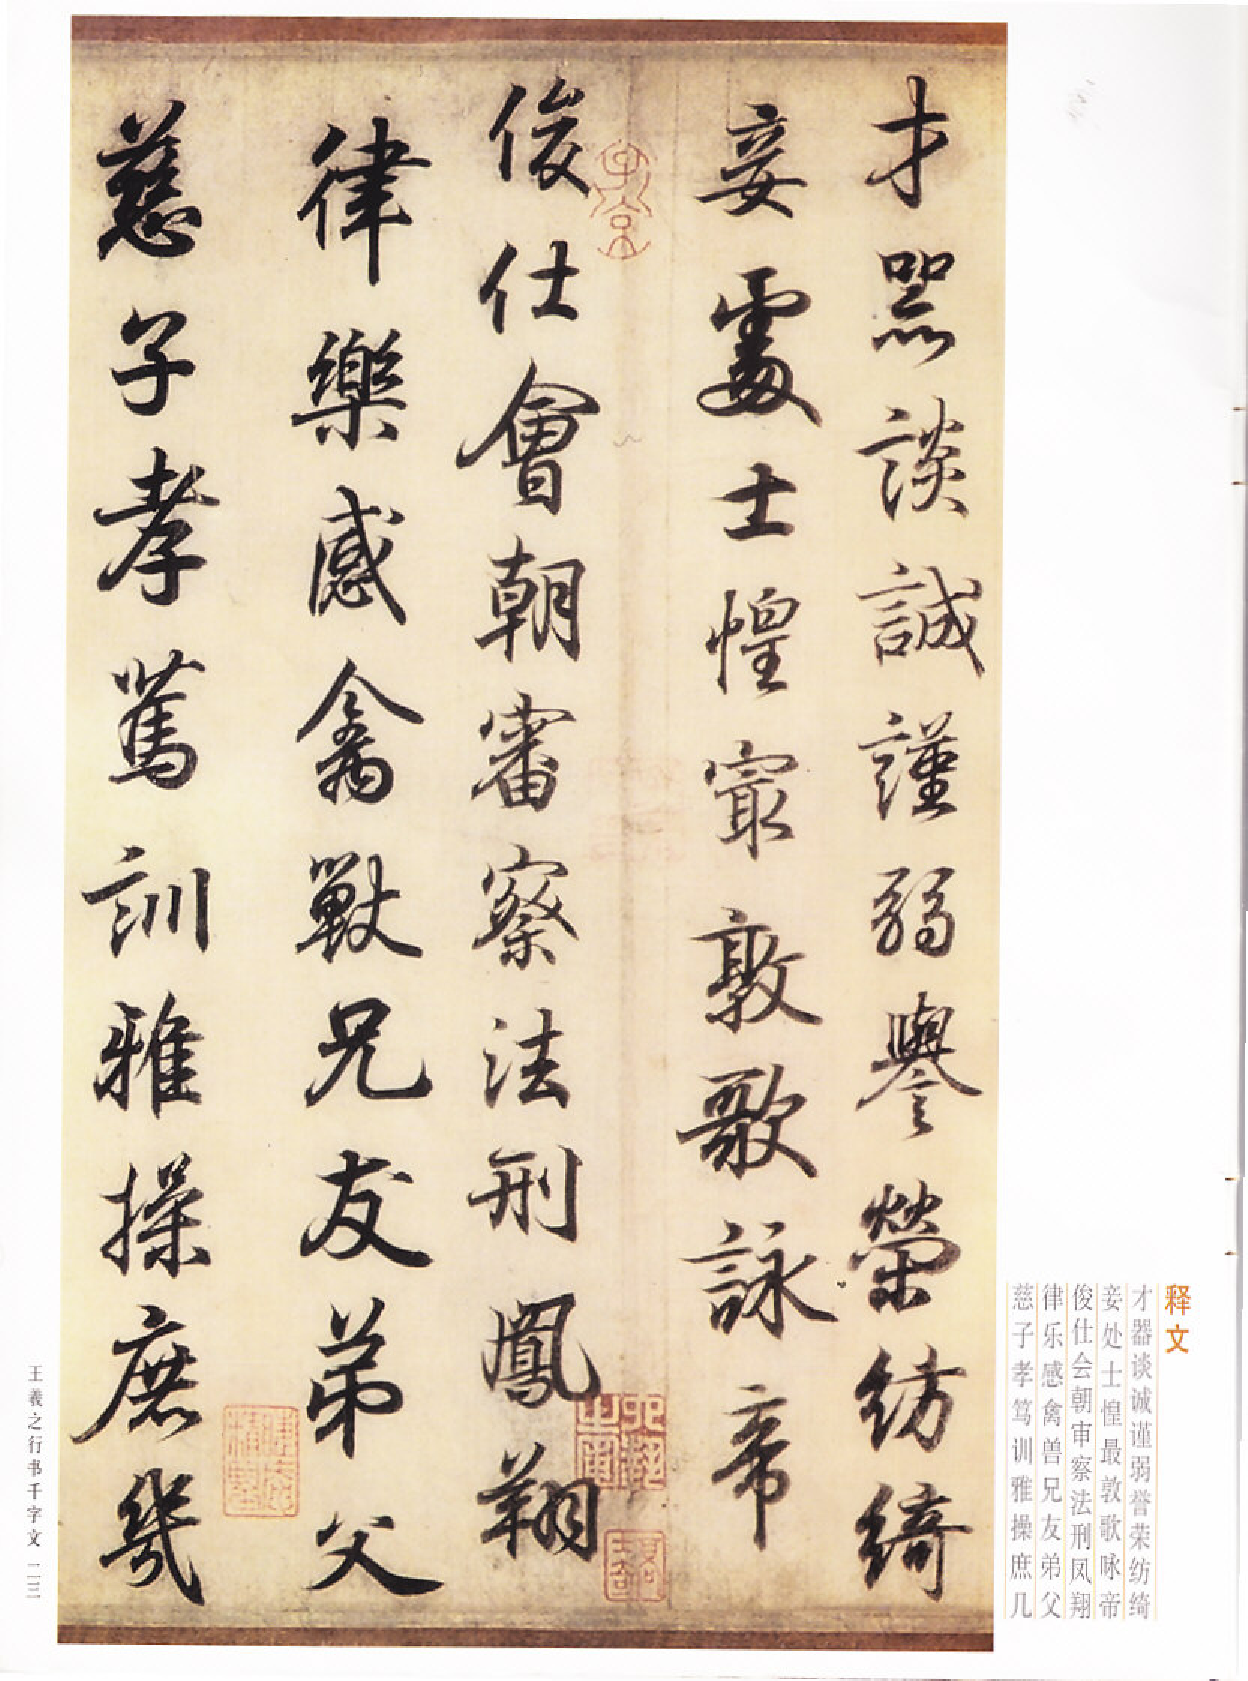 释文
才器谈诚谨弱誉荣纺绮
妾处士惶最敦歌咏帝
俊仕会朝审察法刑凤翔
律乐感禽兽兄友弟父
慈子孝笃训雅操庶几
才器談誠謹弱譽榮紡綺
妾處士惶寂敦歌詠帝
俊仕會朝審察法刑鳳翔
律樂感禽獸兄友弟父
慈子孝篤訓雅操庶幾
王羲之行书千字文 二三